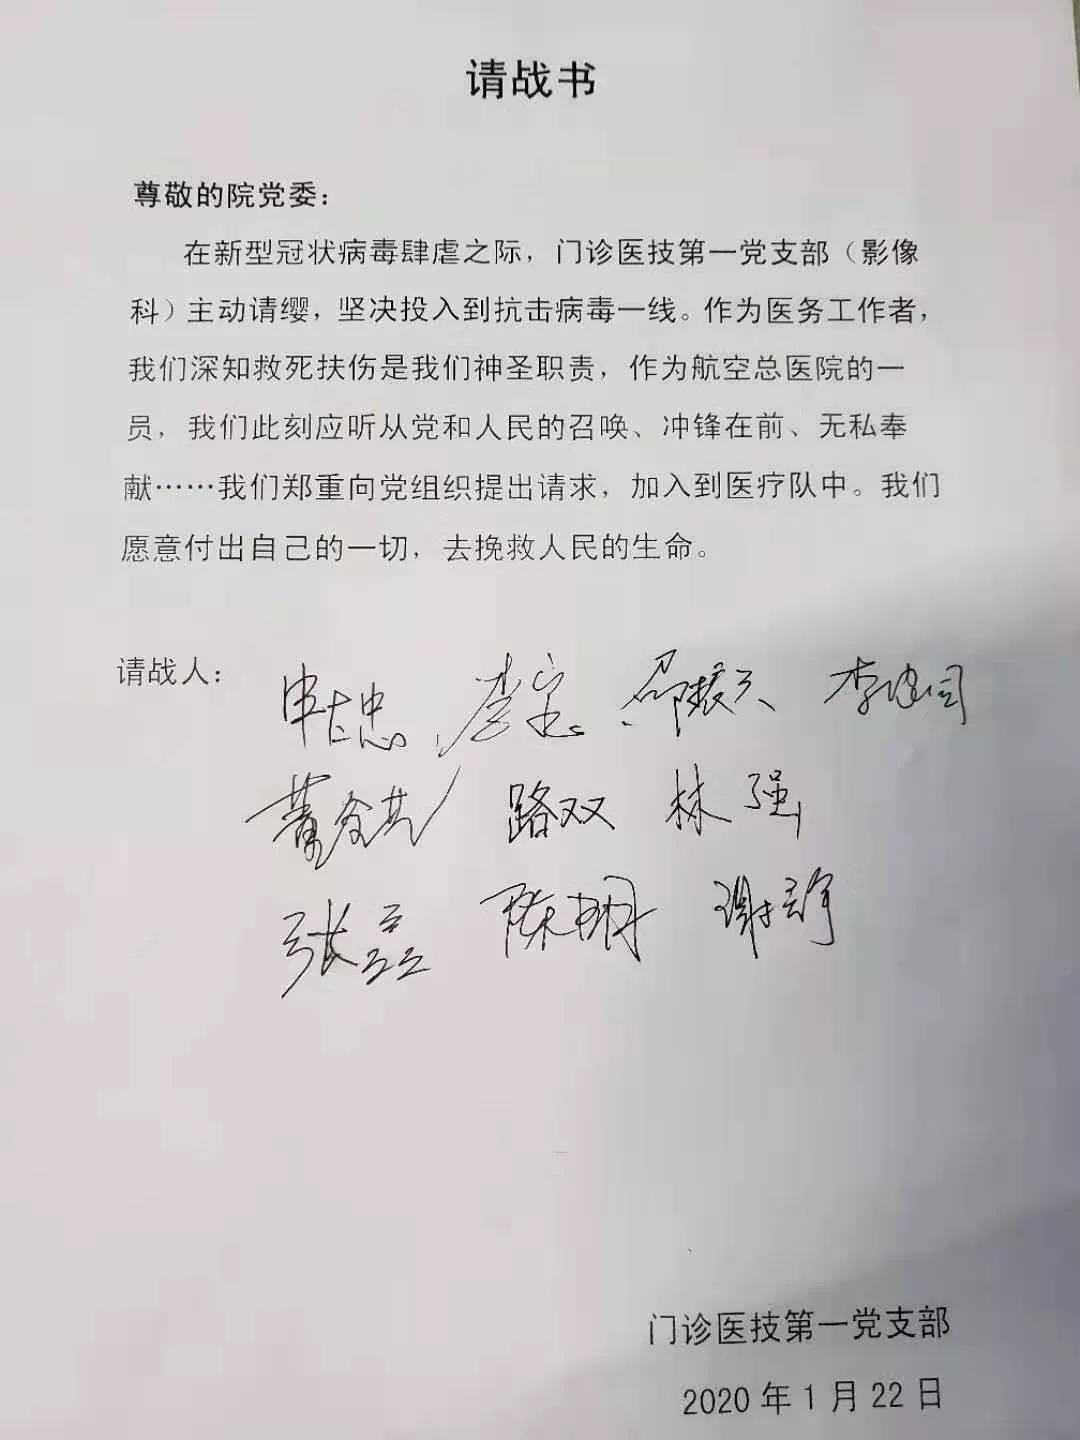 请战书
尊敬的院党委：
在新型冠状病毒肆虐之际，门诊医技第一党支部（影像
科）主动请缨，坚决投入到抗击病毒一线。作为医务工作者，
我们深知救死扶伤是我们神圣职责，作为航空总医院的一
员，我们此刻应听从党和人民的召唤、冲锋在前、无私奉
献……我们郑重向党组织提出请求，加入到医疗队中。我们
愿意付出自己的一切，去挽救人民的生命。
请战人： 李 邵振天 李
董 路双 林强
张磊 陈明 谢
门诊医技第一党支部
2020年1月22日